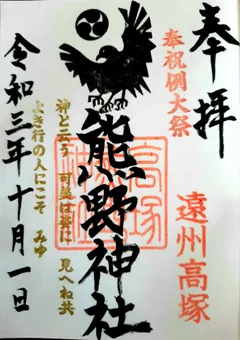 奉拝
奉祝例大祭
遠州高塚
熊野神社
神と云う 可美は誠に 見へね共
よき行の人にこそ みゆ
令和三年十月一日